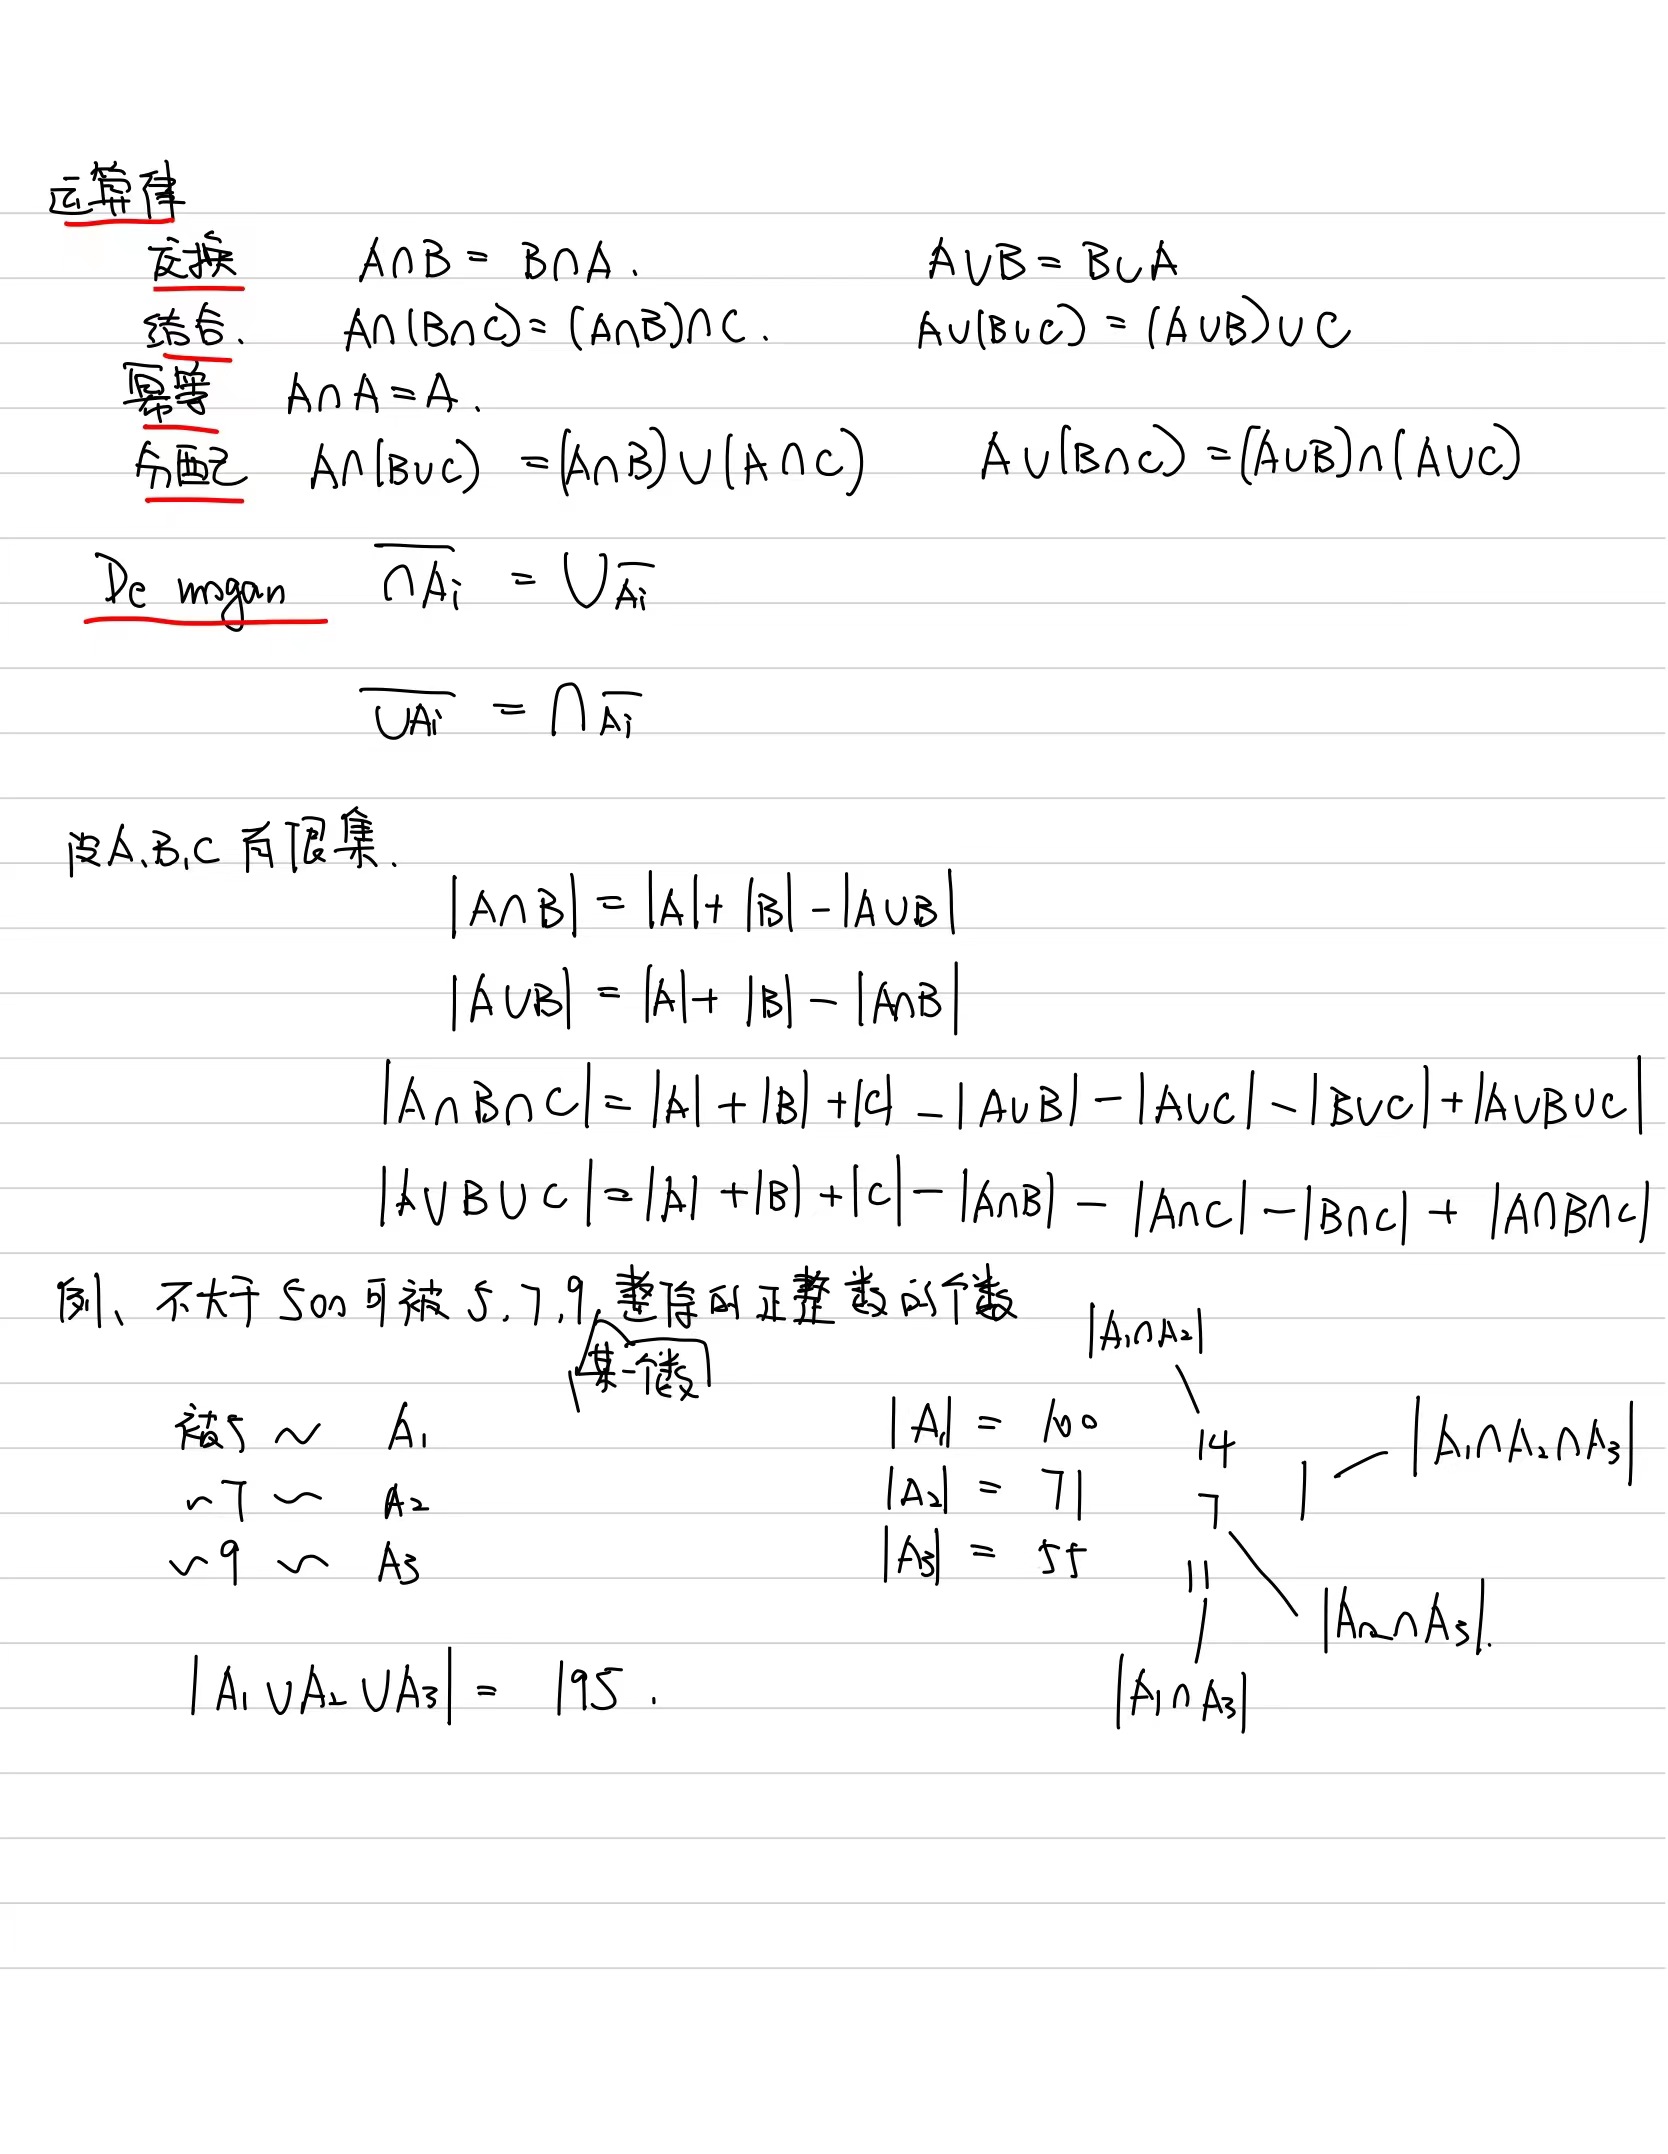 运算律
交换 A∩B = B∩A. A∪B = B∪A
结合. A∩(B∩C) = (A∩B)∩C. A∪(B∪C) = (A∪B)∪C
幂等 A∩A = A.
分配 A∩(B∪C) = (A∩B)∪(A∩C) A∪(B∩C) = (A∪B)∩(A∪C)
De mogan \overline{∩Ai} = ∪\overline{Ai}
\overline{∪Ai} = ∩\overline{Ai}
设A、B、C 有限集.
|A∩B| = |A| + |B| - |A∪B|
|A∪B| = |A| + |B| - |A∩B|
|A∩B∩C| = |A| + |B| + |C| - |A∪B| - |A∪C| - |B∪C| + |A∪B∪C|
|A∪B∪C| = |A| + |B| + |C| - |A∩B| - |A∩C| - |B∩C| + |A∩B∩C|
例、不大于500可被 5,7,9 整除的正整数的个数
某一个数
|A₁∩A₂|
被5 ~ A₁ |A₁| = 100 14 |A₁∩A₂∩A₃|
~7 ~ A₂ |A₂| = 71 7 1
~9 ~ A₃ |A₃| = 55 11
|A₂∩A₃|.
|A₁∪A₂∪A₃| = 195. |A₁∩A₃|